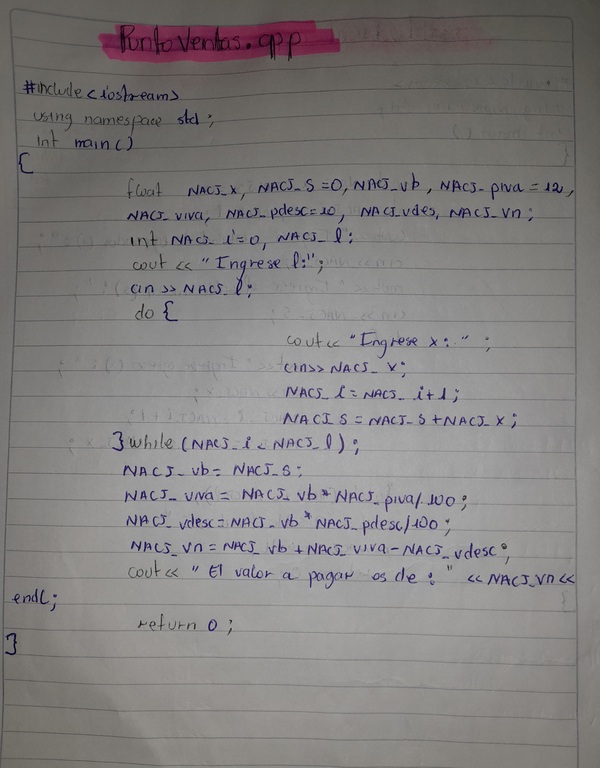 PuntoVentas.cpp
#include <iostream>
using namespace std;
int main()
{
float NACJ_x, NACJ_S=0, NACJ_vb, NACJ_piva=12,
NACJ_viva, NACJ_pdesc=10, NACJ_vdes, NACJ_vn;
int NACJ_i=0, NACJ_l;
cout << "Ingrese l:";
cin >> NACJ_l;
do {
cout<< "Ingrese x: " ;
cin>> NACJ_x;
NACJ_i=NACJ_i+1;
NACJ_S=NACJ_S+NACJ_x;
} while (NACJ_i < NACJ_l);
NACJ_vb= NACJ_S;
NACJ_viva= NACJ_vb * NACJ_piva/100;
NACJ_vdesc=NACJ_vb * NACJ_pdesc/100;
NACJ_vn=NACJ_vb +NACJ_viva-NACJ_vdesc;
cout<< " El valor a pagar es de : " << NACJ_vn <<
endl;
return 0;
}